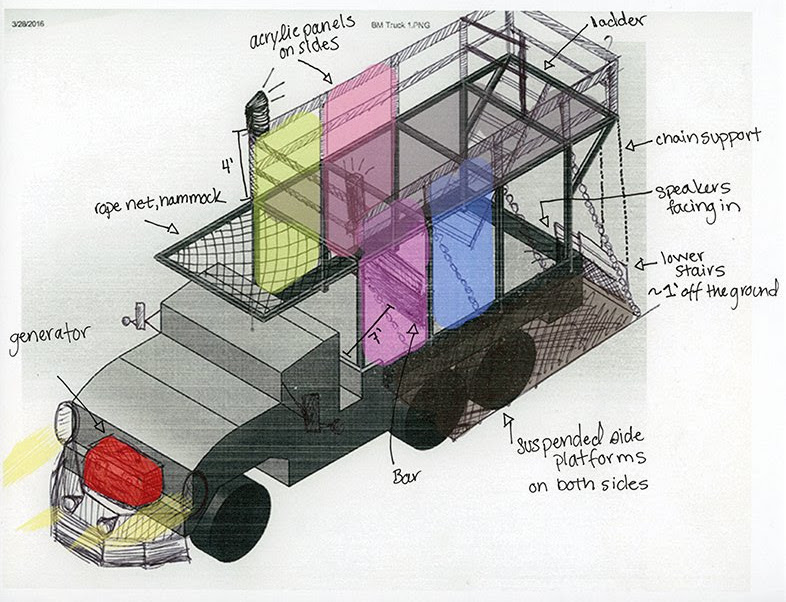 3/28/2016
BM Truck 1.PNG
acrylic panels
on sides
ladder
4'
chain support
rope net, hammock
speakers
facing in
lower
stairs
~1' off the ground
generator
7'
Bar
suspended side
platforms
on both sides